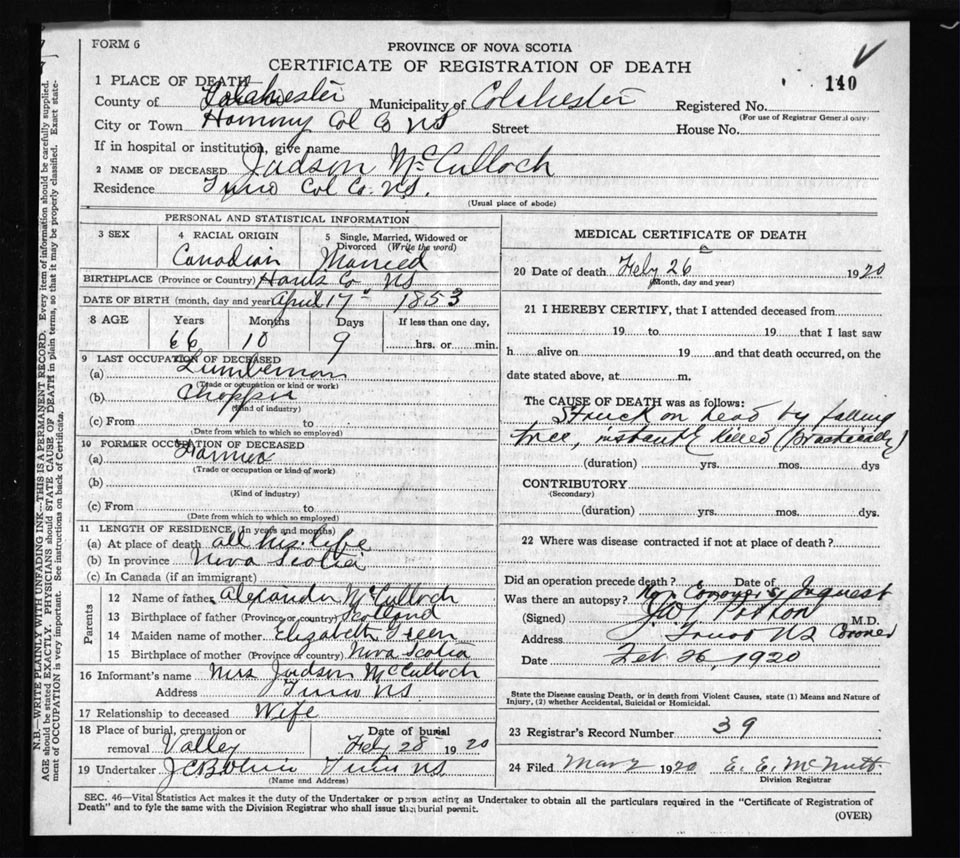 FORM 6
PROVINCE OF NOVA SCOTIA
CERTIFICATE OF REGISTRATION OF DEATH
140
1 PLACE OF DEATH
County of Colchester Municipality of Colchester Registered No.
(For use of Registrar General only)
City or Town Col Co NS Street House No.
If in hospital or institution, give name
2 NAME OF DECEASED Judson McCulloch
Residence Truro Col Co. NS.
(Usual place of abode)
PERSONAL AND STATISTICAL INFORMATION
3 SEX 4 RACIAL ORIGIN 5 Single, Married, Widowed or Divorced (Write the word)
Canadian Married
BIRTHPLACE (Province or Country) Hants Co NS
DATE OF BIRTH (month, day and year) April 17 1853
8 AGE Years Months Days If less than one day,
66 10 9 hrs. or min.
9 LAST OCCUPATION OF DECEASED
(a) Lumberman
(Trade or occupation or kind of work)
(b) Chopper
(Kind of industry)
(c) From to
(Date from which to which so employed)
10 FORMER OCCUPATION OF DECEASED
(a) Farmer
(Trade or occupation or kind of work)
(b)
(Kind of industry)
(c) From to
(Date from which to which so employed)
11 LENGTH OF RESIDENCE, (In years and months)
(a) At place of death all his life
(b) In province Nova Scotia
(c) In Canada (if an immigrant)
Parents
12 Name of father Alexander McCulloch
13 Birthplace of father (Province or country) Scotland
14 Maiden name of mother Elizabeth Green
15 Birthplace of mother (Province or country) Nova Scotia
16 Informant's name Mrs Judson McCulloch
Address Truro NS
17 Relationship to deceased Wife
18 Place of burial, cremation or removal Valley Date of burial Feby 28 1920
19 Undertaker Truro NS
(Name and Address)
MEDICAL CERTIFICATE OF DEATH
20 Date of death Feby 26 1920
(Month, day and year)
21 I HEREBY CERTIFY, that I attended deceased from
19 to 19 that I last saw
h alive on 19 and that death occurred, on the
date stated above, at m.
The CAUSE OF DEATH was as follows:
Struck on head by falling
tree, instantly killed (practically)
(duration) yrs. mos. dys
CONTRIBUTORY
(Secondary)
(duration) yrs. mos. dys.
22 Where was disease contracted if not at place of death?
Did an operation precede death? Date of
Was there an autopsy? Coroner's Inquest
(Signed) M.D.
Address Truro NS Coroner
Date Feb. 26 1920
State the Disease causing Death, or in death from Violent Causes, state (1) Means and Nature of
Injury, (2) whether Accidental, Suicidal or Homicidal.
23 Registrar's Record Number 39
24 Filed Mar 2 1920 E. E. McNutt
Division Registrar
SEC. 46—Vital Statistics Act makes it the duty of the Undertaker or person acting as Undertaker to obtain all the particulars required in the "Certificate of Registration of
Death" and to fyle the same with the Division Registrar who shall issue the burial permit.
(OVER)
N.B.—WRITE PLAINLY WITH UNFADING INK—THIS IS A PERMANENT RECORD. Every item of information should be carefully supplied.
AGE should be stated EXACTLY. PHYSICIANS should STATE CAUSE OF DEATH in plain terms, so that it may be properly classified. Exact state-
ment of OCCUPATION is very important. See instructions on back of Certificate.